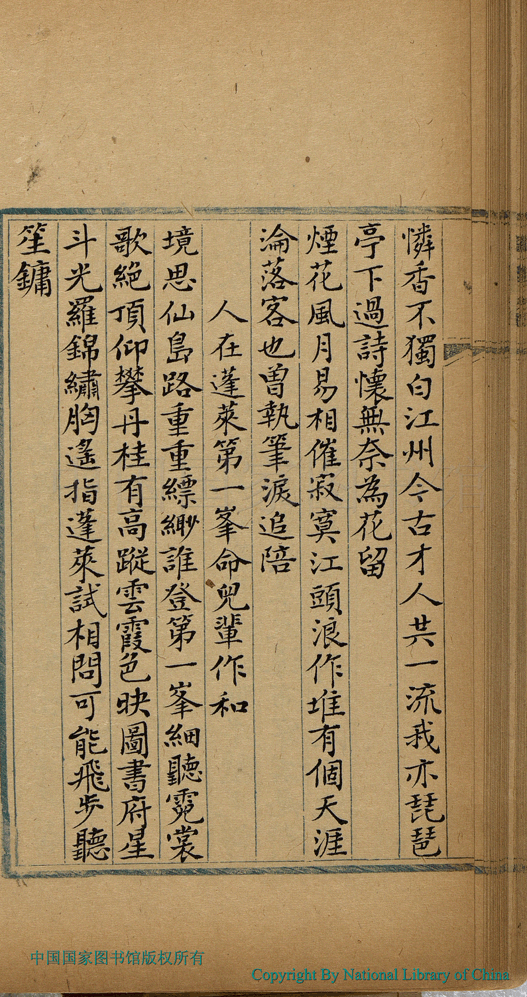 憐香不獨白江州今古才人共一流我亦琵琶
亭下過詩懷無奈為花留
煙花風月易相催寂寞江頭浪作堆有個天涯
淪落客也曾執筆淚追陪
人在蓬萊第一峯命兒輩作和
境思仙島路重重縹緲誰登第一峯細聽霓裳
歌絕頂仰攀丹桂有高蹤雲霞色映圖書府星
斗光羅錦繡胸遙指蓬萊試相問可能飛步聽
笙鏞
中国国家图书馆版权所有
Copyright By National Library of China